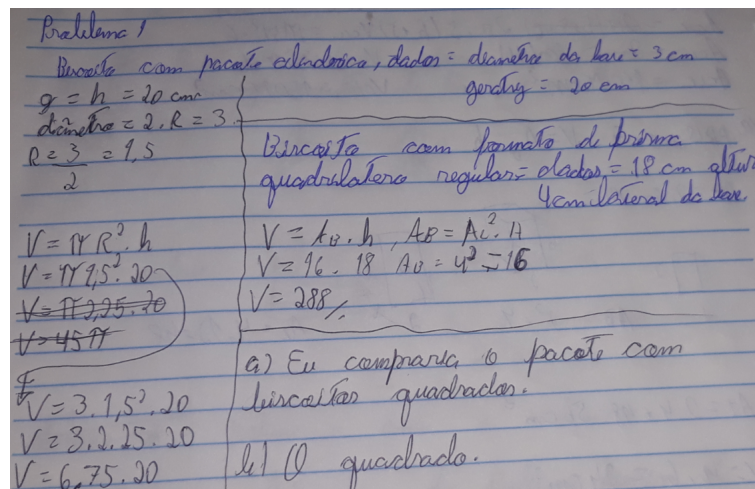 Problema 1
Biscoito com pacote cilindrico, dados = diametro da base = 3 cm
geratriz = 20 cm
g = h = 20 cm
diâmetro = 2. R = 3
R = 3/2 = 1,5
V = π R². h
V = π 1,5². 20
V = π 2,25. 20
V = 45 π
V = 3. 1,5². 20
V = 3. 2.25. 20
V = 6,75. 20
Biscoito com formato de prisma
quadrilatero regular = dados = 18 cm altur
4 cm lateral da base
V = AB. h, AB = AL². H
V = 16. 18 AB = 4² = 16
V = 288
a) Eu compraria o pacote com
biscoitos quadrados.
b) O quadrado.